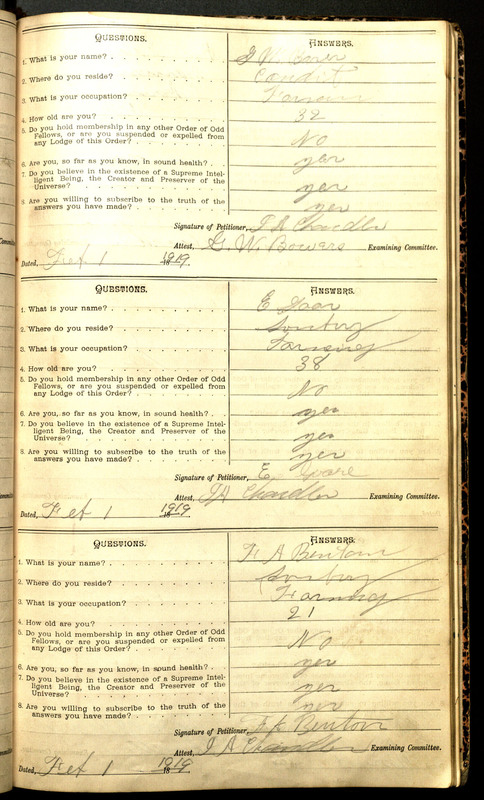 QUESTIONS. ANSWERS.
1. What is your name?
2. Where do you reside?
3. What is your occupation?
4. How old are you? 32
5. Do you hold membership in any other Order of Odd
Fellows, or are you suspended or expelled from
any Lodge of this Order? No
6. Are you, so far as you know, in sound health? yes
7. Do you believe in the existence of a Supreme Intel-
ligent Being, the Creator and Preserver of the
Universe? yes
8. Are you willing to subscribe to the truth of the
answers you have made? yes
Signature of Petitioner, Chandler
Attest, G. W. Bowers Examining Committee.
Dated, Feb 1 1919
QUESTIONS. ANSWERS.
1. What is your name? E
2. Where do you reside?
3. What is your occupation? Farming
4. How old are you? 38
5. Do you hold membership in any other Order of Odd
Fellows, or are you suspended or expelled from
any Lodge of this Order? No
6. Are you, so far as you know, in sound health? yes
7. Do you believe in the existence of a Supreme Intel-
ligent Being, the Creator and Preserver of the
Universe? yes
8. Are you willing to subscribe to the truth of the
answers you have made? yes
Signature of Petitioner, E
Attest, Chandler Examining Committee.
Dated, Feb 1 1919
QUESTIONS. ANSWERS.
1. What is your name? A Benton
2. Where do you reside?
3. What is your occupation? Farming
4. How old are you? 21
5. Do you hold membership in any other Order of Odd
Fellows, or are you suspended or expelled from
any Lodge of this Order? No
6. Are you, so far as you know, in sound health? yes
7. Do you believe in the existence of a Supreme Intel-
ligent Being, the Creator and Preserver of the
Universe? yes
8. Are you willing to subscribe to the truth of the
answers you have made? yes
Signature of Petitioner, Benton
Attest, Chandler Examining Committee.
Dated, Feb 1 1919